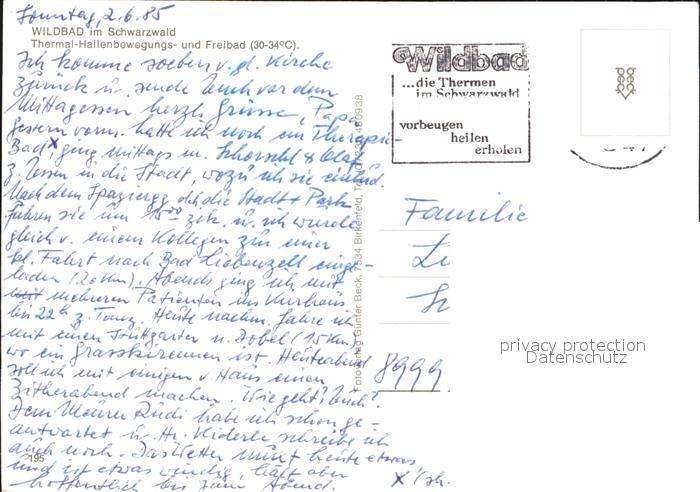 Sonntag, 2.6.85
WILDBAD im Schwarzwald
Thermal-Hallenbewegungs- und Freibad (30-34°C).
Ich komme soeben v. gl. Kirche
zurück u. sende Euch vor dem
Mittagessen herzl. Grüsse, Papa
gestern vorm. hatte ich noch ein Therapie-
Bad, ging mittags m. &
z. Essen in die Stadt, wozu ich sie einlud.
Nach dem Spazierg. dch. die Stadt + Park
fuhren sie um 15⁰⁰ zck. u. ich wurde
gleich v. einem Kollegen zu einer
kl. Fahrt nach Bad Liebenzell einge-
laden (20 Km). Abends ging ich mit
mehreren Patienten ins Kurhaus
bis 22h z. Tanz. Heute nachm. fahre ich
mit einen Stuttgarter n. Dobel (15 Km)
wo ein Grasskirennen ist. Heuteabend
soll ich mit einigen v. Haus einen
Zitherabend machen. Wie geht's Euch?
Dem Rudi habe ich schon ge-
antwortet u. Hr. schreibe ich
auch noch. Das Wetter heute etwas
und ist etwas windig, hält aber
hoffentlich bis zum Abend.
195
Fotoverlag Günter Beck, 7534 Birkenfeld, Tel.
Wildbad
...die Thermen
im Schwarzwald
vorbeugen
heilen
erholen
beck
Familie
8999
privacy protection
Datenschutz